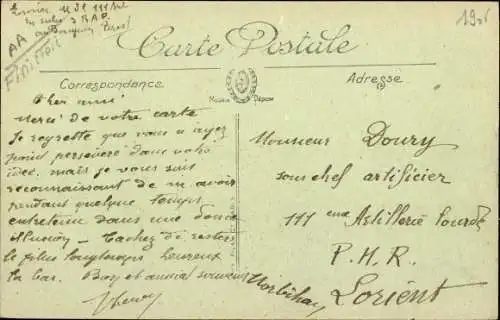 1925
AA
Finistère
Carte Postale
Correspondance
Adresse
Cher ami
Merci de votre carte
Je regrette que vous n'ayez
point perseveré dans votre
idee. mais je vous suis
reconnaissant de m'avoir
pendant quelque temps
entretenu dans une douce
illusion — Tachez de rester
le plus longtemps heureux
la bas. Bon et amical souvenir
Monsieur Doury
sous chef artificier
111 eme Artillerie Lourde
P. H. R.
Lorient
Morbihan